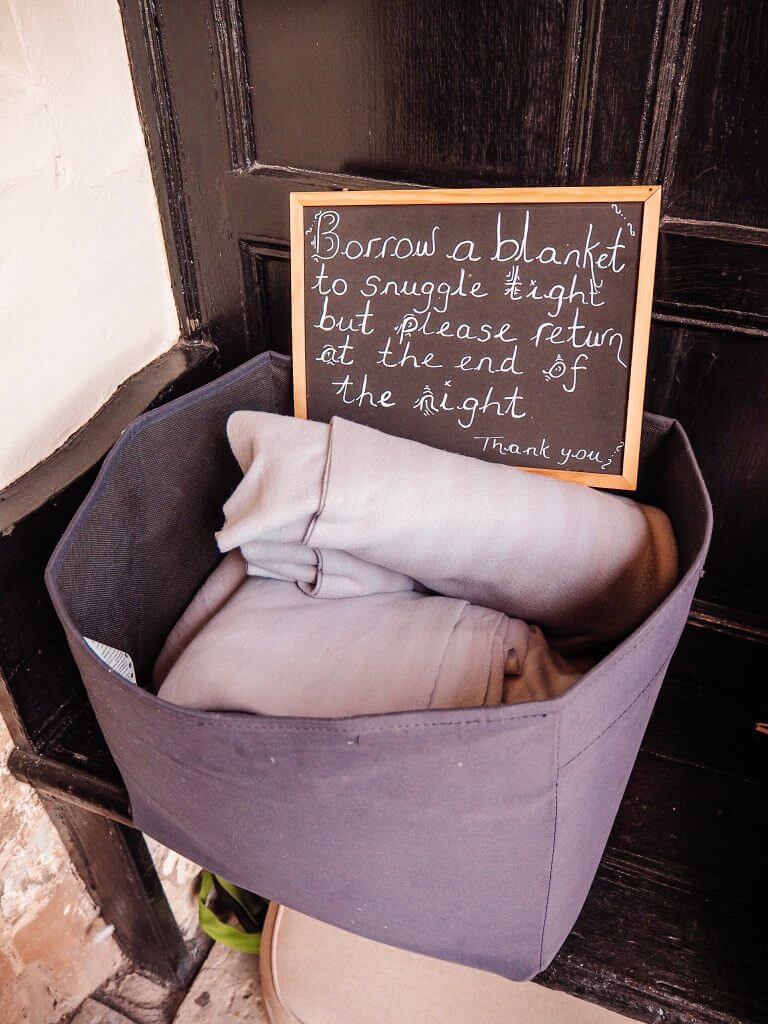 Borrow a blanket
to snuggle tight
but please return
at the end of
the night
Thank you